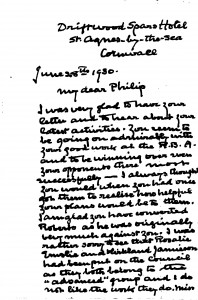 Driftwood Spars Hotel
St. Agnes-by-the-Sea
Cornwall
June 28th 1930.
My dear Philip
I was very glad to have your
letter and to hear about your
latest activities. You seem to
be going on admirably with
your good work at the R.B.A
and to be winning over even
your opponents there most
successfully — I always thought
you would when you had once
got them to realise how helpful
your plans would be to them.
I am glad you have converted
Roberts as he was originally
very much against you. I was
rather sorry to see that Rosalie
Emslie and Kirkland Jamieson
had been put on the Council
as they both belong to the
"advanced" group and I do
not like the works they do. Miss